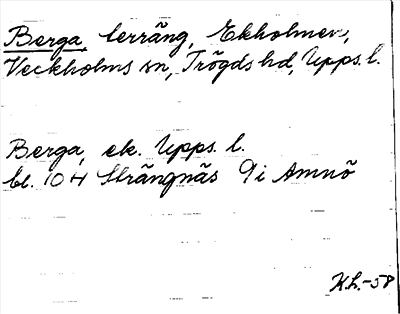 Berga, terräng, Ekholmen,
Veckholms sn, Trögds hd, Upps. l.
Berga, ek. Upps. l.
bl. 10 H Strängnäs 9i Amnö
K.h.-58